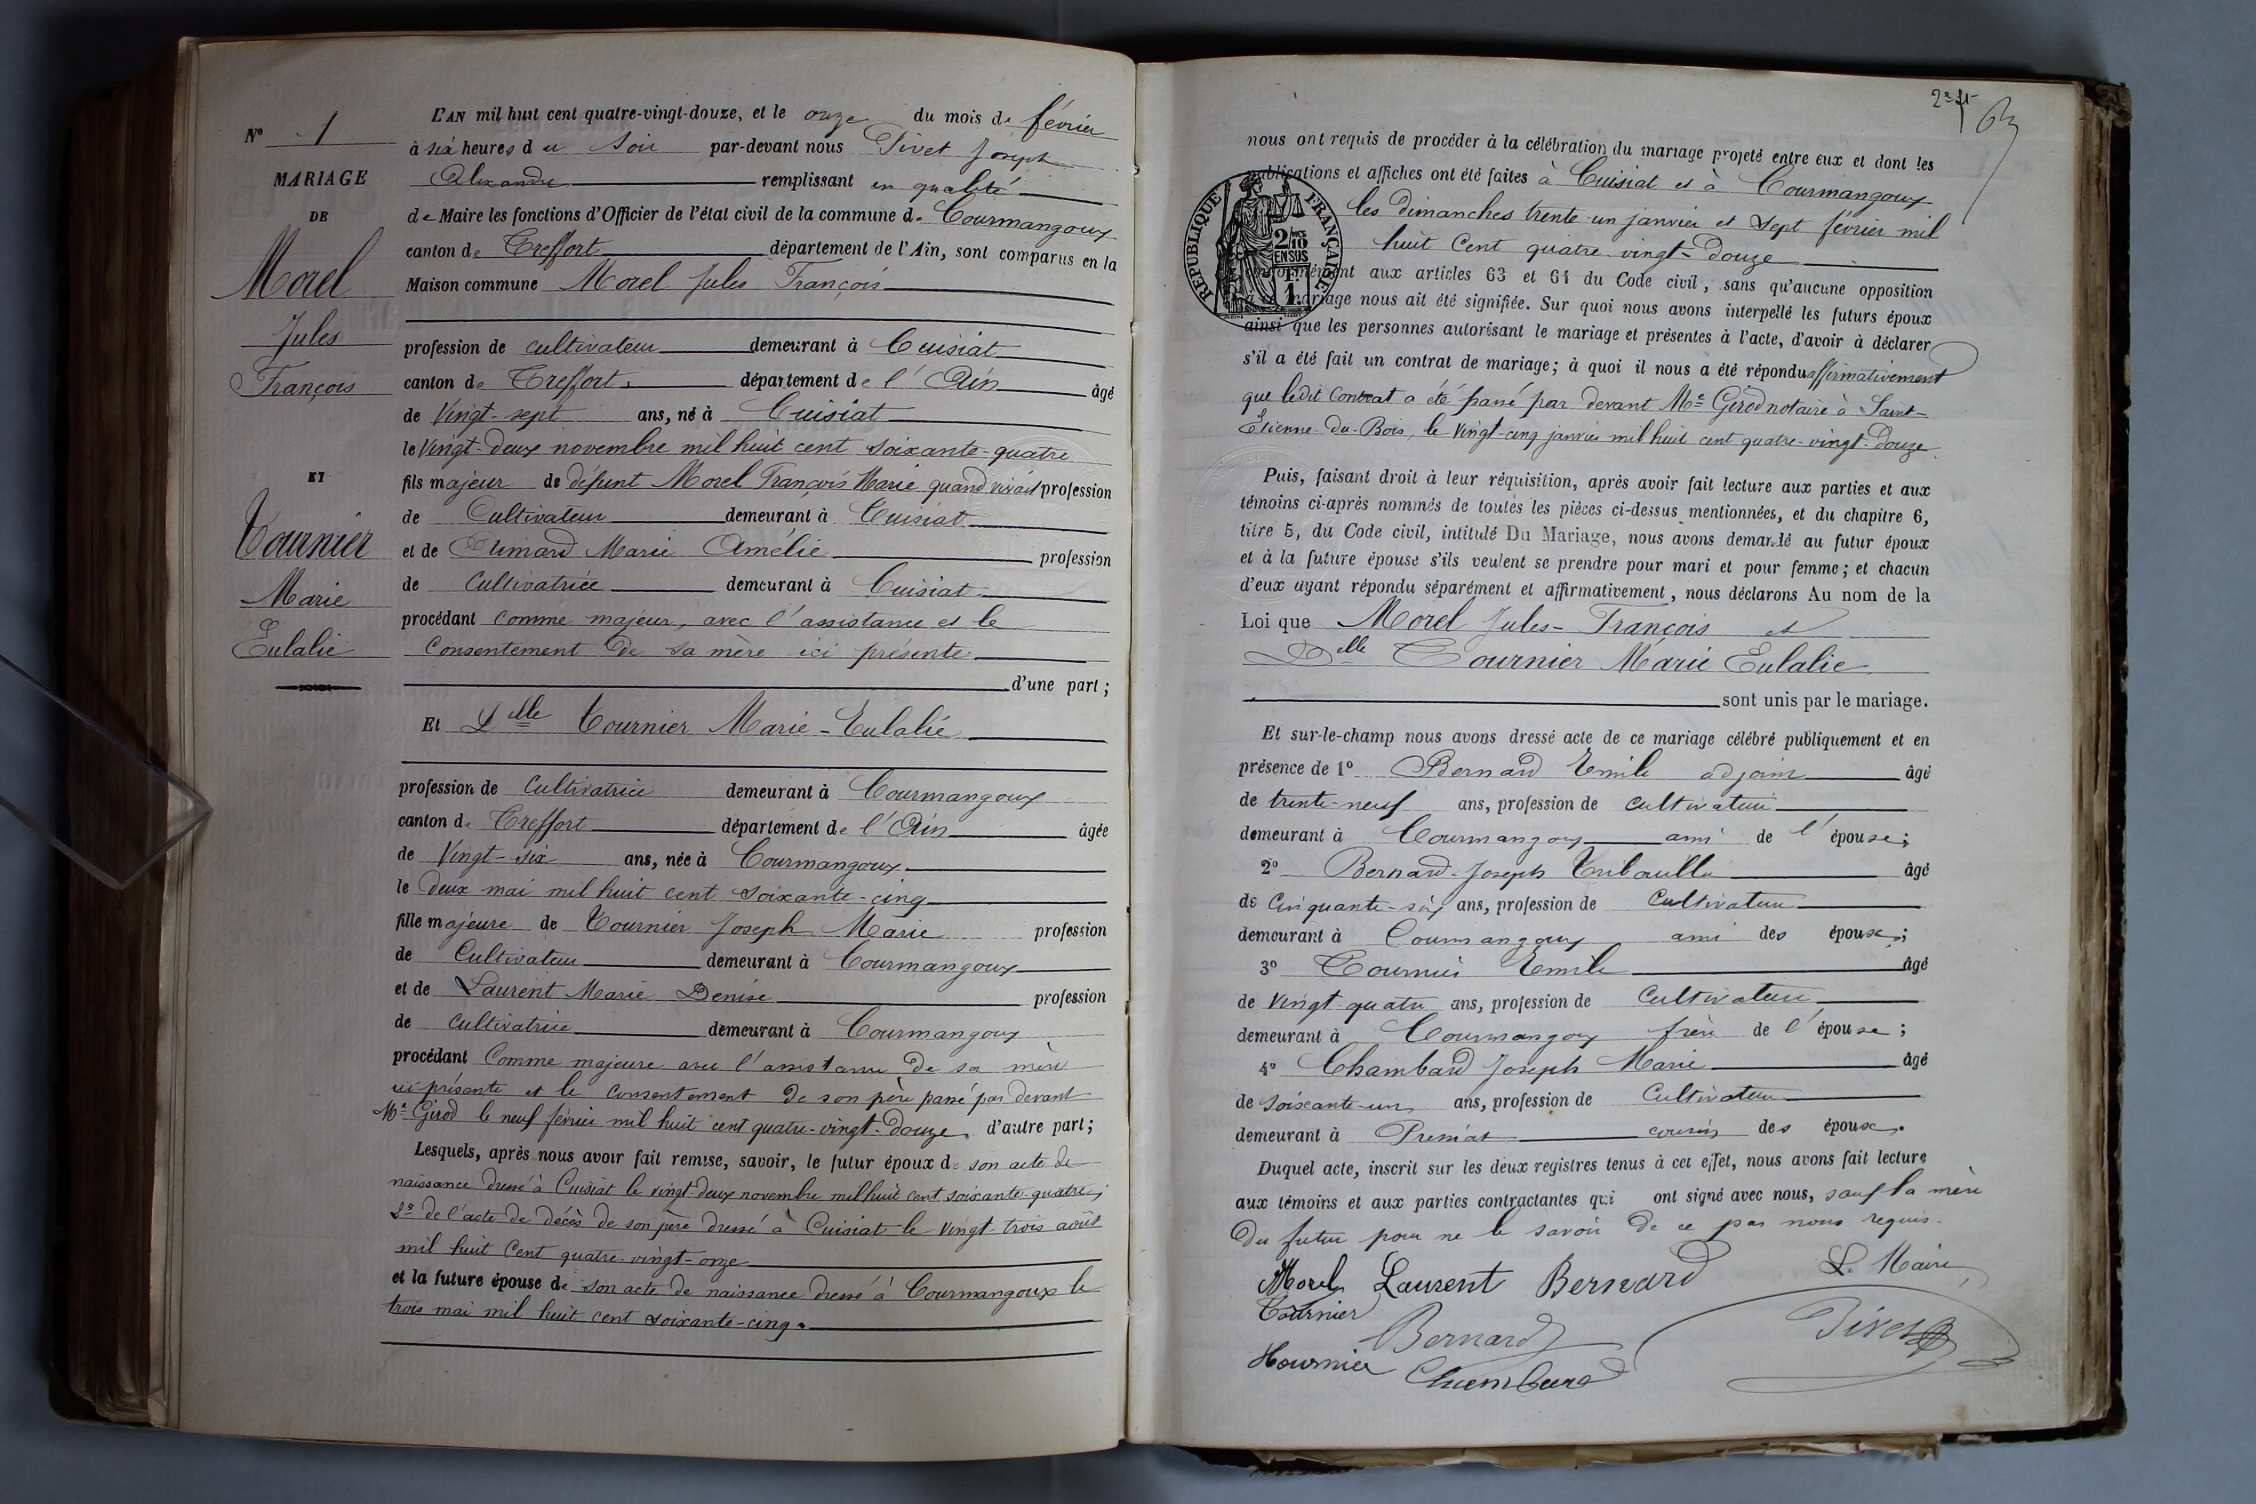 N° 1
MARIAGE
DE
Morel
Jules
François
ET
Tournier
Marie
Eulalie
L'AN mil huit cent quatre-vingt-douze, et le onze du mois de février
à six heures du soir par-devant nous Pivet Joseph
Alexandre remplissant en qualité
de Maire les fonctions d'Officier de l'état civil de la commune de Courmangoux
canton de Treffort département de l'Ain, sont comparus en la
Maison commune Morel Jules François
profession de cultivateur demeurant à Cuisiat
canton de Treffort département de l'Ain âgé
de Vingt-sept ans, né à Cuisiat
le Vingt-deux novembre mil huit cent soixante-quatre
fils majeur de défunt Morel François Marie quand vivait profession
de Cultivateur demeurant à Cuisiat
et de Marie Amélie profession
de cultivatrice demeurant à Cuisiat
procédant comme majeur, avec l'assistance et le
consentement de sa mère ici présente
d'une part;
Et Delle Tournier Marie-Eulalie
profession de cultivatrice demeurant à Courmangoux
canton de Treffort département de l'Ain âgée
de Vingt-six ans, née à Courmangoux
le deux mai mil huit cent soixante-cinq
fille majeure de Tournier Joseph Marie profession
de Cultivateur demeurant à Courmangoux
et de Laurent Marie Denise profession
de cultivatrice demeurant à Courmangoux
procédant comme majeure avec l'assistance de sa mère
ici présente et le consentement de son père passé par devant
Me Girod le neuf février mil huit cent quatre-vingt-douze, d'autre part;
Lesquels, après nous avoir fait remise, savoir, le futur époux de son acte de
naissance dressé à Cuisiat le vingt-deux novembre mil huit cent soixante-quatre;
2° de l'acte de décès de son père dressé à Cuisiat le vingt-trois août
mil huit cent quatre-vingt-onze
et la future épouse de son acte de naissance dressé à Courmangoux le
trois mai mil huit cent soixante-cinq.
63
nous ont requis de procéder à la célébration du mariage projeté entre eux et dont les
publications et affiches ont été faites à Cuisiat et à Courmangoux
les dimanches trente-un janvier et sept février mil
huit cent quatre-vingt-douze
conformément aux articles 63 et 64 du Code civil, sans qu'aucune opposition
à ce mariage nous ait été signifiée. Sur quoi nous avons interpellé les futurs époux
ainsi que les personnes autorisant le mariage et présentes à l'acte, d'avoir à déclarer
s'il a été fait un contrat de mariage; à quoi il nous a été répondu affirmativement
que ledit Contrat a été passé par devant Me Girod notaire à Saint-
Etienne-du-Bois, le vingt-cinq janvier mil huit cent quatre-vingt-douze
RÉPUBLIQUE FRANÇAISE
2/10 EN SUS
Puis, faisant droit à leur réquisition, après avoir fait lecture aux parties et aux
témoins ci-après nommés de toutes les pièces ci-dessus mentionnées, et du chapitre 6,
titre 5, du Code civil, intitulé Du Mariage, nous avons demandé au futur époux
et à la future épouse s'ils veulent se prendre pour mari et pour femme; et chacun
d'eux ayant répondu séparément et affirmativement, nous déclarons Au nom de la
Loi que Morel Jules-François et
Delle Tournier Marie Eulalie
sont unis par le mariage.
Et sur-le-champ nous avons dressé acte de ce mariage célébré publiquement et en
présence de 1° Bernard Emile adjoint âgé
de trente-neuf ans, profession de cultivateur
demeurant à Courmangoux ami de l'épouse;
2° Bernard-Joseph âgé
de Cinquante-six ans, profession de cultivateur
demeurant à Courmangoux ami des époux;
3° Tournier Emile âgé
de Vingt-quatre ans, profession de cultivateur
demeurant à Courmangoux frère de l'épouse;
4° Chambard Joseph Marie âgé
de soixante-un ans, profession de cultivateur
demeurant à cousin des époux.
Duquel acte, inscrit sur les deux registres tenus à cet effet, nous avons fait lecture
aux témoins et aux parties contractantes qui ont signé avec nous, sauf la mère
du futur pour ne le savoir de ce par nous requis.
Morel Laurent Bernard L. Maire
Tournier
Bernard Pivet
Tournier Chambard